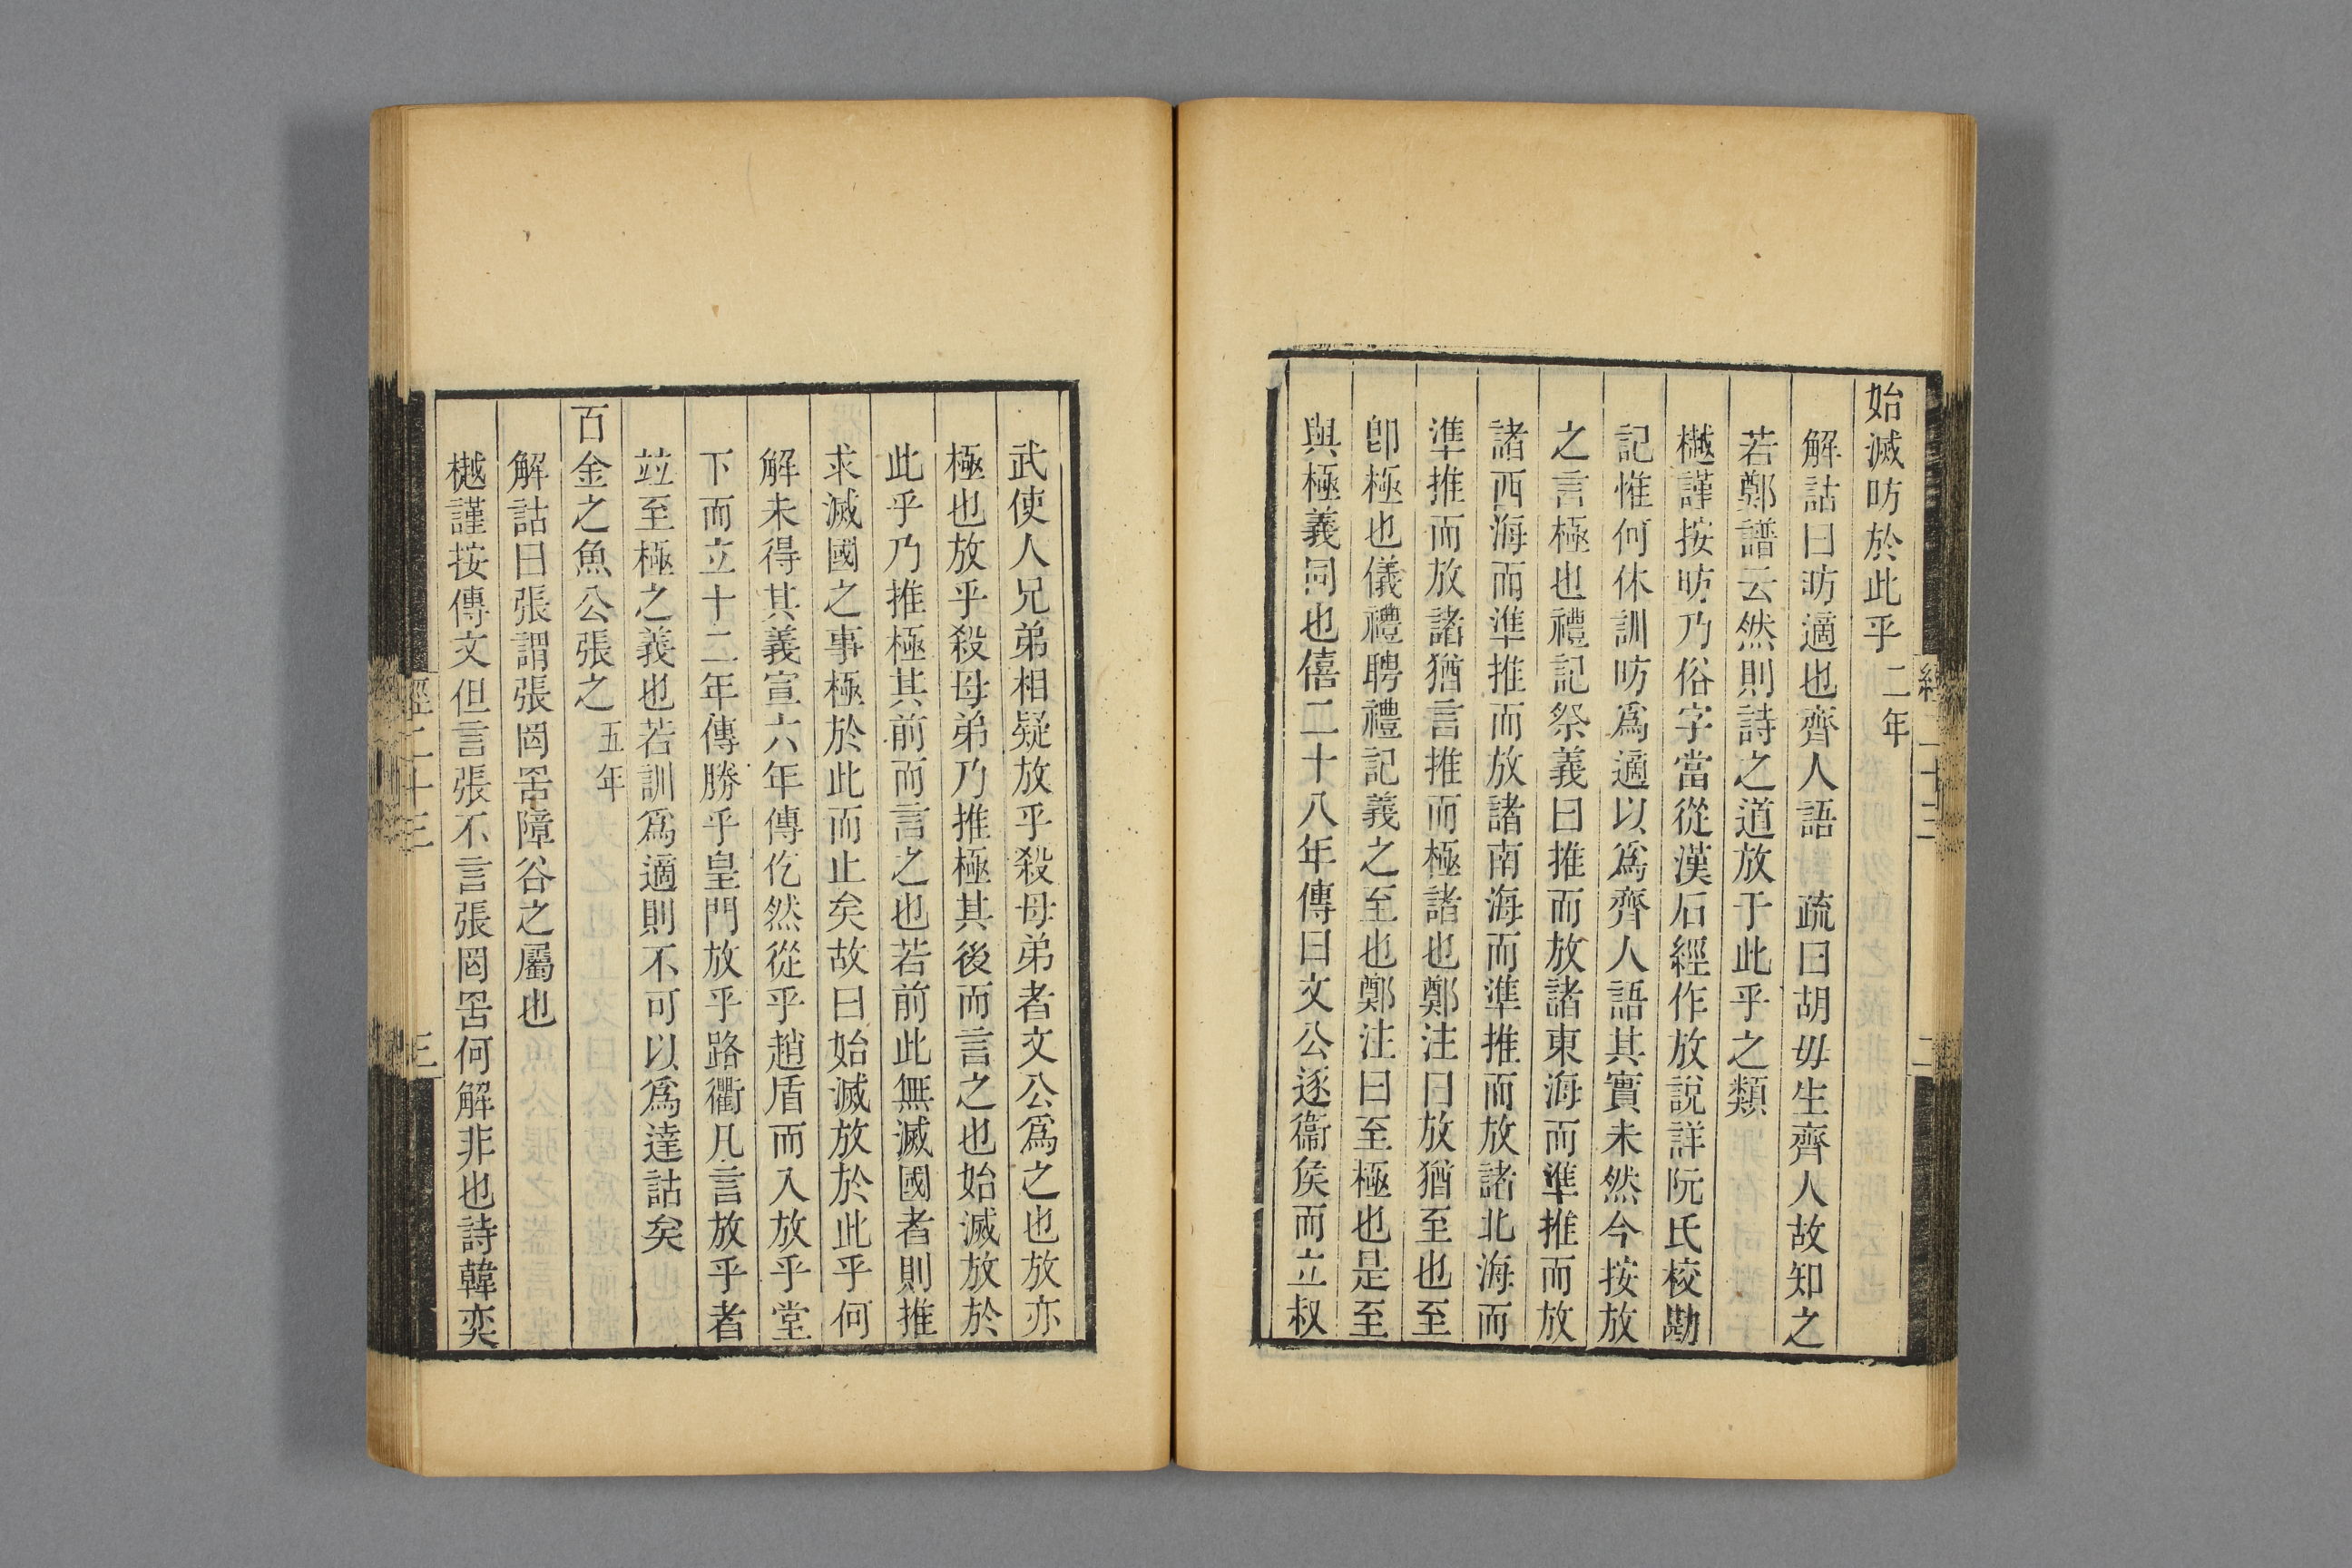 始滅昉於此乎二年
解詁曰昉適也齊人語　疏曰胡毋生齊人故知之
若鄭譜云然則詩之道放于此乎之類
樾謹按昉乃俗字當從漢石經作放說詳阮氏校勘
記惟何休訓昉爲適以爲齊人語其實未然今按放
之言極也禮記祭義曰推而放諸東海而準推而放
諸西海而準推而放諸南海而準推而放諸北海而
準推而放諸猶言推而極諸也鄭注曰放猶至也至
卽極也儀禮聘禮記義之至也鄭注曰至極也是至
與極義同也僖二十八年傳曰文公逐衞矦而立叔
武使人兄弟相疑放乎殺母弟者文公爲之也放亦
極也放乎殺母弟乃推極其後而言之也始滅放於
此乎乃推極其前而言之也若前此無滅國者則推
求滅國之事極於此而止矣故曰始滅放於此乎何
解未得其義宣六年傳仡然從乎趙盾而入放乎堂
下而立十二年傳勝乎皇門放乎路衢凡言放乎者
竝至極之義也若訓爲適則不可以爲達詁矣
百金之魚公張之五年
解詁曰張謂張罔罟障谷之屬也
樾謹按傳文但言張不言張罔罟何解非也詩韓奕
經二十三
三